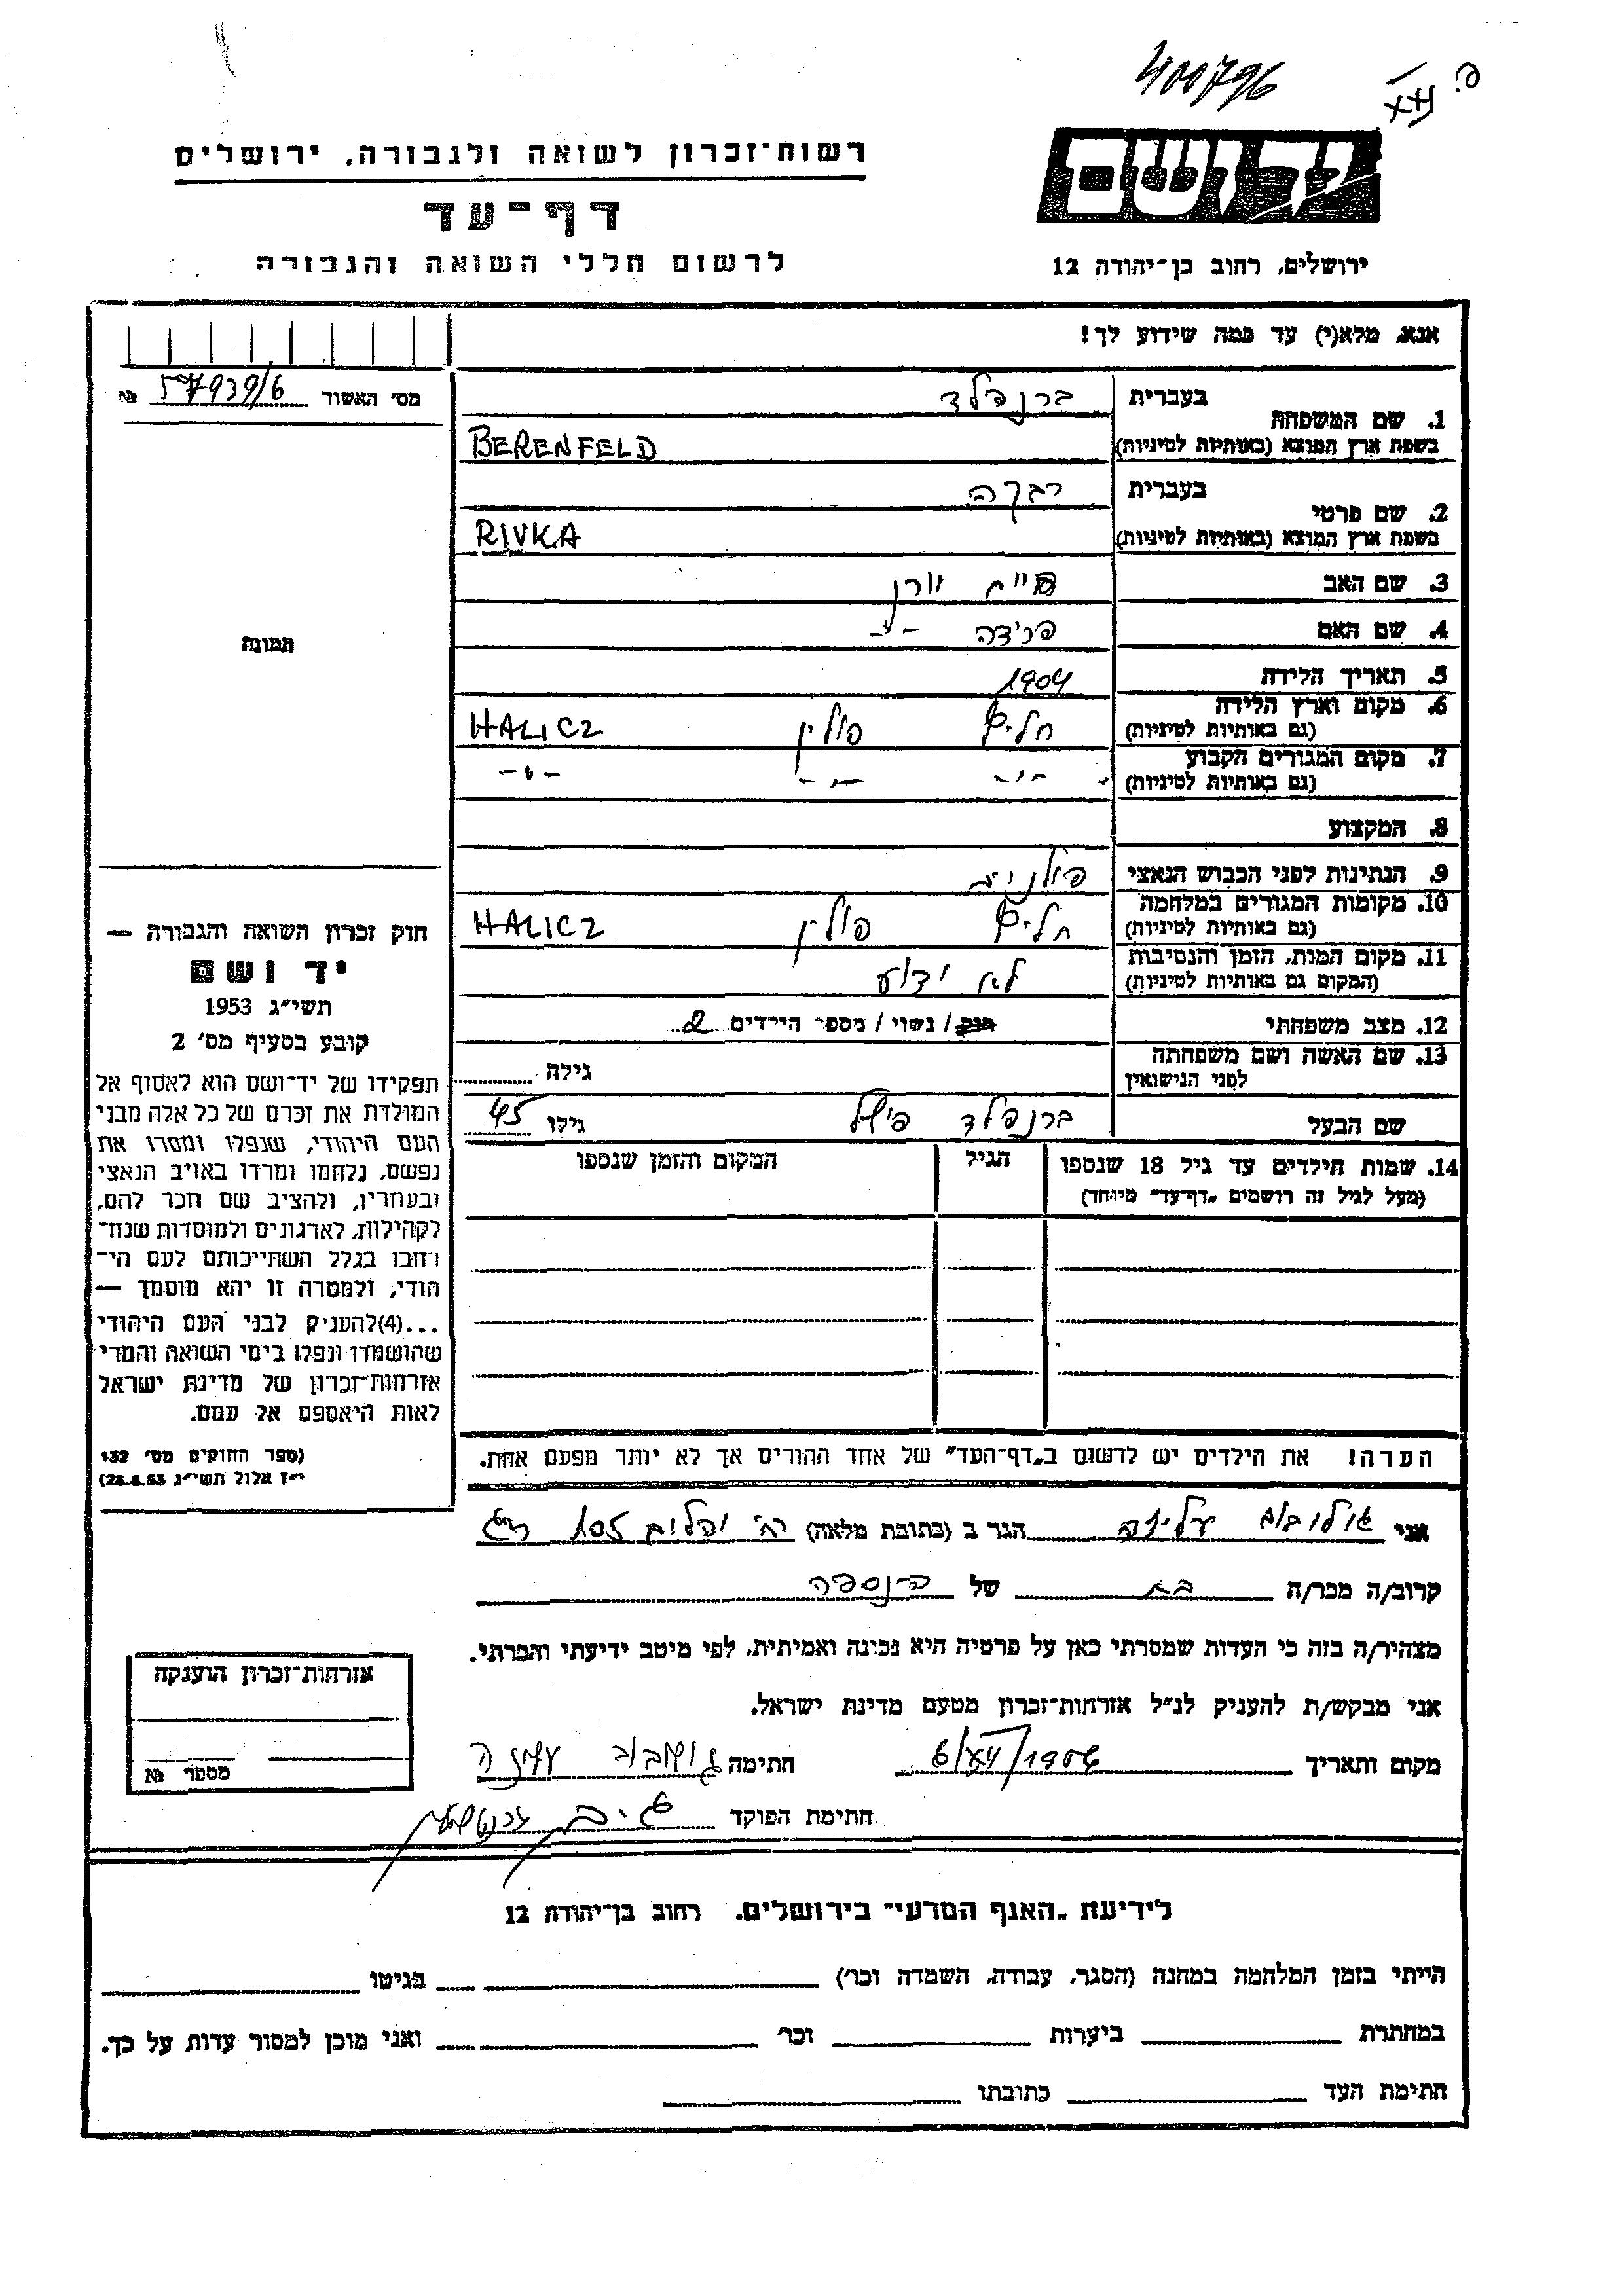 400796
רשות־זכרון לשואה ולגבורה, ירושלים
דף־עד
לרשום חללי השואה והגבורה
יד ושם
ירושלים, רחוב בן־יהודה 12
אנא, מלא(י) עד כמה שידוע לך!
מס׳ האשור 57939/6 №
1. שם המשפחה בעברית ברנפלד
בשפת ארץ המוצא (באותיות לטיניות) BERENFELD
2. שם פרטי בעברית רבקה
בשפת ארץ המוצא (באותיות לטיניות) RIVKA
3. שם האב חיים
4. שם האם
5. תאריך הלידה 1904
6. מקום וארץ הלידה
(גם באותיות לטיניות) חליץ פולין HALICZ
7. מקום המגורים הקבוע
(גם באותיות לטיניות) -"- -"- -"-
8. המקצוע
9. הנתינות לפני הכבוש הנאצי פולנית
10. מקומות המגורים במלחמה
(גם באותיות לטיניות) חליץ פולין HALICZ
11. מקום המות, הזמן והנסיבות
(המקום גם באותיות לטיניות) לא ידוע
12. מצב משפחתי רווק / נשוי / מספר הילדים 2
13. שם האשה ושם משפחתה
לפני הנישואין גילה
שם הבעל ברנפלד פישל גילו 45
14. שמות הילדים עד גיל 18 שנספו הגיל המקום והזמן שנספו
(מעל לגיל זה רושמים „דף־עד״ מיוחד)
הערה! את הילדים יש לרשום ב„דף־העד״ של אחד ההורים אך לא יותר מפעם אחת.
תמונה
חוק זכרון השואה והגבורה —
יד ושם
תשי״ג 1953
קובע בסעיף מס׳ 2
תפקידו של יד־ושם הוא לאסוף אל
המולדת את זכרם של כל אלה מבני
העם היהודי, שנפלו ומסרו את
נפשם, נלחמו ומרדו באויב הנאצי
ובעוזריו, ולהציב שם וזכר להם,
לקהילות, לארגונים ולמוסדות שנח־
רחבו בגלל השתייכותם לעם הי־
הודי, ולמטרה זו יהא מוסמך —
...(4)להעניק לבני העם היהודי
שהושמדו ונפלו בימי השואה והמרי
אזרחות־זכרון של מדינת ישראל
לאות היאספם אל עמם.
(ספר החוקים מס׳ 132
י״ז אלול תשי״ג 28.8.53)
אני עליזה הגר ב (כתובת מלאה) 105
קרוב/ה מכר/ה בת של הנספה
מצהיר/ה בזה כי העדות שמסרתי כאן על פרטיה היא נכונה ואמיתית, לפי מיטב ידיעתי והכרתי.
אני מבקש/ת להעניק לנ״ל אזרחות־זכרון מטעם מדינת ישראל.
מקום ותאריך חתימה
חתימת הפוקד
אזרחות־זכרון הוענקה
מספר №
לידיעת „האגף המדעי״ בירושלים. רחוב בן־יהודה 12
הייתי בזמן המלחמה במחנה (הסגר, עבודה, השמדה וכר׳) בגיטו
במחתרת ביערות וכר׳ ואני מוכן למסור עדות על כך.
חתימת העד כתובתו